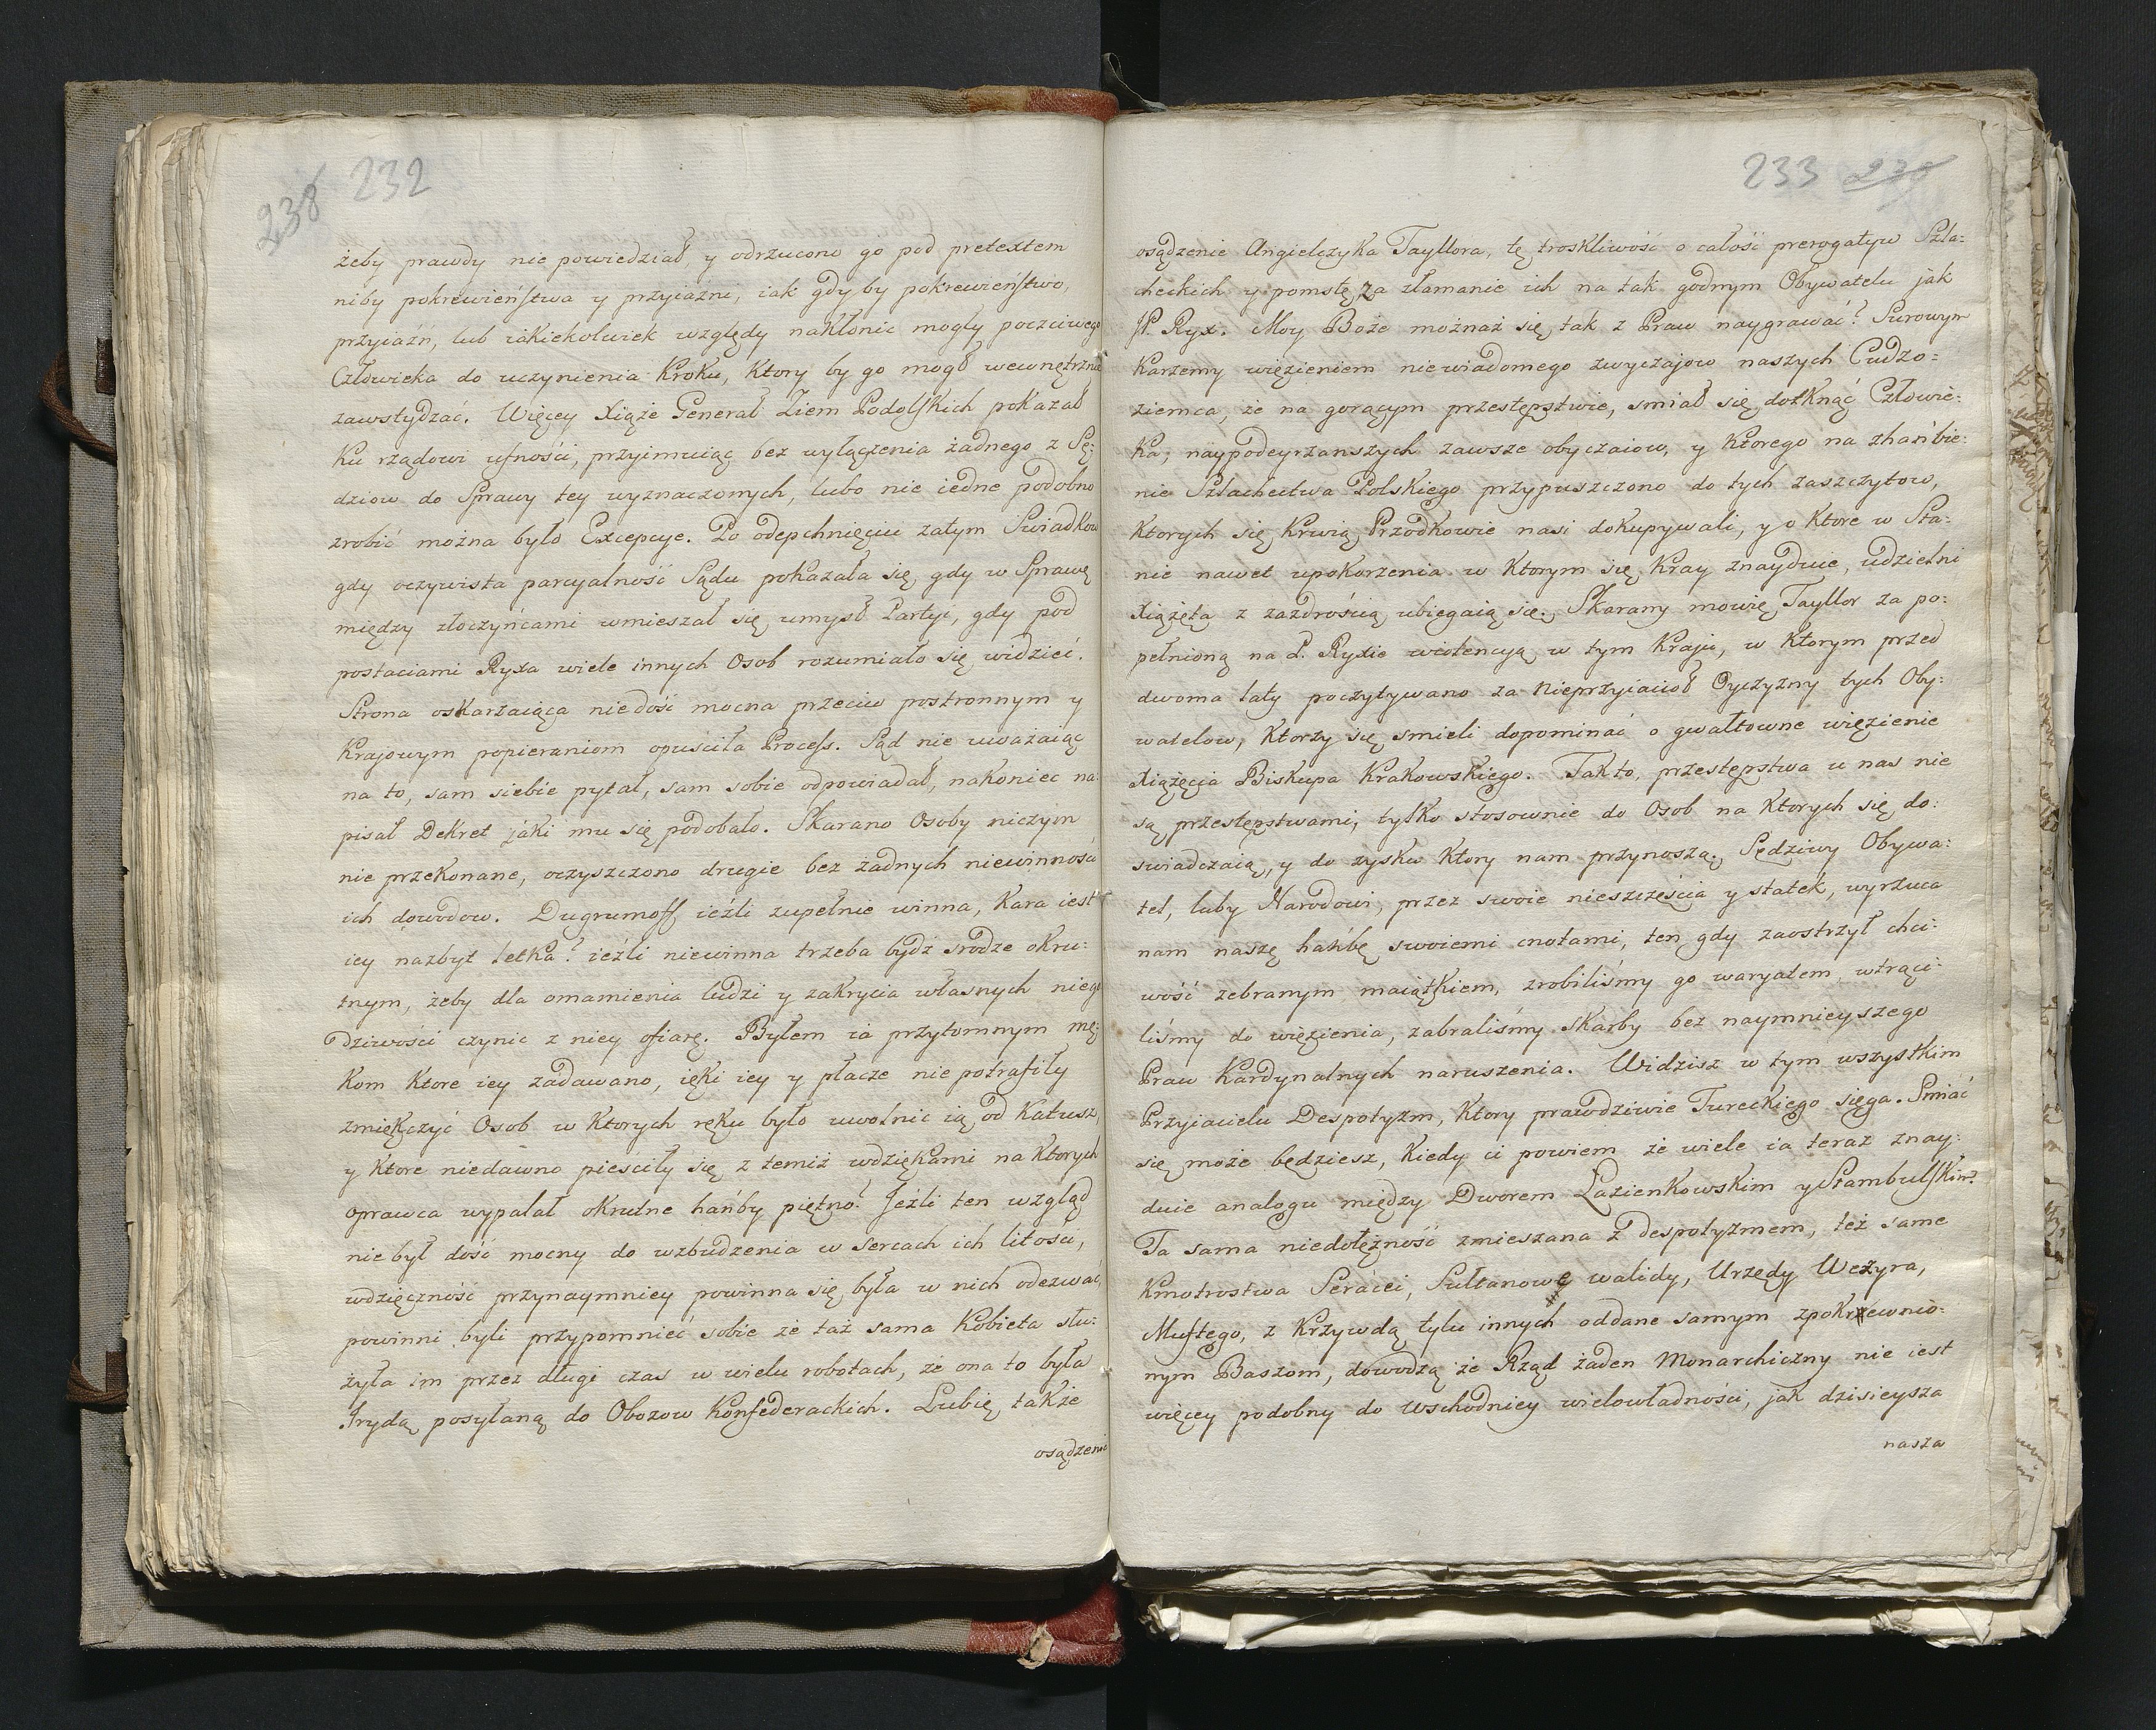 238 232
żeby prawdy nie powiedział, y odrzucono go pod pretextem
niby pokrewieństwa y przyiaźni, iak gdyby pokrewieństwo,
przyiaźn, lub iakiekolwiek względy nakłonic mogły poczciwego
Człowieka do uczynienia Kroku, Ktory by go mogł wewnętrznie
zawstydzać. Więcey Xiąże Generał Ziem Podolskich pokazał
Ku rządowi ufności, przyimuiąc bez wyłączenia żadnego z Sę:
dziow do Sprawy tey wyznaczonych, lubo nie iedne podobno
zrobić można było Excepcye. Po odepchnięciu zatym Swiadkow
gdy oczywista parcyalność Sądu pokazała się, gdy w Sprawę
między złoczyńcami wmieszał się umysł Partyi, gdy pod
postaciami Ryxa wiele innych Osob rozumiało się widzieć.
Strona oskarzaiąca nie dość mocna przeciw postronnym y
Krajowym popieraniom opuściła Process. Sąd nie uważaiąc
na to, sam siebie pytał, sam sobie odpowiadał, nakoniec na:
pisał Dekret jaki mu się podobało. Skarano Osoby niczym
nie przekonane, oczyszczono drugie bez żadnych niewinności
ich dowodow. Dugrumoff, ieźli zupełnie winna, Kara iest
iey nazbyt letka? ieźli niewinna trzeba bydź srodze okru:
tnym, żeby dla omamienia ludzi y zakrycia własnych niego
dziwości czynic z niey ofiarę. Byłem ia przytomnym mę:
Kom Ktore iey zadawano, ięki iey y płacze nie potrafiły
zmiękczyć Osob w Ktorych ręku było uwolnic ią od Katusz,
y Ktore niedawno pieściły się z temiż wdziękami na Ktorych
oprawca wypalał okrutne hańby piętno? Jeźli ten wzgląd
nie był dość mocny do wzbudzenia w Sercach ich litości,
wdzięczność przynaymniey powinna się była w nich odezwać,
powinni byli przypomnieć sobie że taż sama Kobieta słu:
żyła im przez długi czas w wielu robotach, że ona to była
Irydą posyłaną do Obozow Konfederackich. Lubię także
osądzenie
233 238
osądzenie Angielczyka Tayllora, tę troskliwość o całość prerogatyw Szla:
checkich y pomstę za złamanie ich na tak godnym Obywatelu jak
JP. Ryx. Moy Boże możnaż się tak z Praw naygrawać? Surowym
Karzemy więzieniem niewiadomego zwyczajow naszych Cudzo=
ziemca, że na gorącym przestępstwie, smiał się dotknąć Człowie:
Ka, naypodeyrzanszych zawsze obyczaiow, y Ktorego na zhańbie:
nie Szlachectwa Polskiego przypuszczono do tych zaszczytow,
Ktorych się Krwią Przodkowie nasi dokupywali, y o Ktore w Sta:
nie nawet upokorzenia w Ktorym się Kray znayduie, udzielni
Xiążęta z zazdrością ubiegaią się. Skarany mowię Tayllor za po:
pełnioną na P. Ryxie wiolencyą w tym Kraju, w Ktorym przed
dwoma laty poczytywano za Nieprzyiacioł Oyczyzny tych Oby:
watelow, Ktorzy się smieli dopominać o gwałtowne więzienie
Xiążęcia Biskupa Krakowskiego. Tak to, przestępstwa u nas nie
są przestępstwami, tylko stosownie do Osob na Ktorych się do:
swiadczaią, y do zysku Ktory nam przynoszą. Sędziwy Obywa:
tel, luby Narodowi, przez swoie nieszczęścia y statek, wyrzuca
nam naszę hańbę swoiemi cnotami, ten gdy zaostrzył chci:
wość zebranym maiątkiem, zrobiliśmy go waryatem, wtrąci:
liśmy do więzienia, zabraliśmy Skarby bez naymnieyszego
Praw Kardynalnych naruszenia. Widzisz w tym wszystkim
Przyiacielu Despotyzm, Ktory prawdziwie Tureckiego sięga. Smiać
się może będziesz, Kiedy ci powiem że wiele ia teraz znay:
duie analogu między Dworem Lazienkowskim y Stambulskim?
Ta sama niedołężność zmieszana z despotyzmem, też same
Kmotrostwa Seraiei, Sultanowę walidy, Urzędy Wezyra,
Muftego, z Krzywdą tylu innych oddane samym zpokrewnio:
nym Baszom, dowodzą że Rząd żaden Monarchiczny nie iest
więcey podobny do Wschodniey wielowładności, jak dzisieysza
nasza